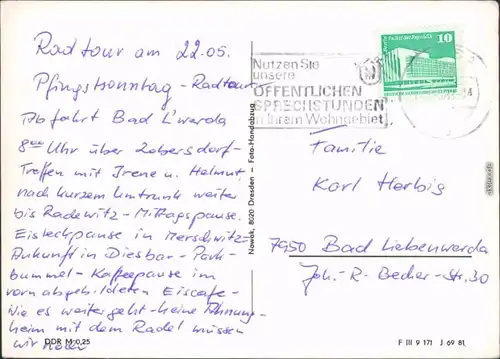 Radtour am 22.05.
Pfingstsonntag - Radtour
Abfahrt Bad L'werda
8⁰⁰ Uhr über Zobersdorf-
Treffen mit Irene u. Helmut
nach kurzem Umtrunk weiter
bis Radewitz - Mittagspause.
Eisleckpause in Merschwitz-
Ankunft in Diesbar - Park-
bummel - Kaffeepause im
vorn abgebildeten Eiscafe -
Wie es weitergeht - keine Ahnung -
heim mit dem Radel müssen
wir
DDR M 0,25
Nowak, 8020 Dresden — Foto-Handabzug
Nutzen Sie
unsere
ÖFFENTLICHEN
SPRECHSTUNDEN
in Ihrem Wohngebiet
10
Familie
Karl Herbig
7950 Bad Liebenwerda
Joh.-R.-Becher-Str. 30
F III 9 171 J 69 81